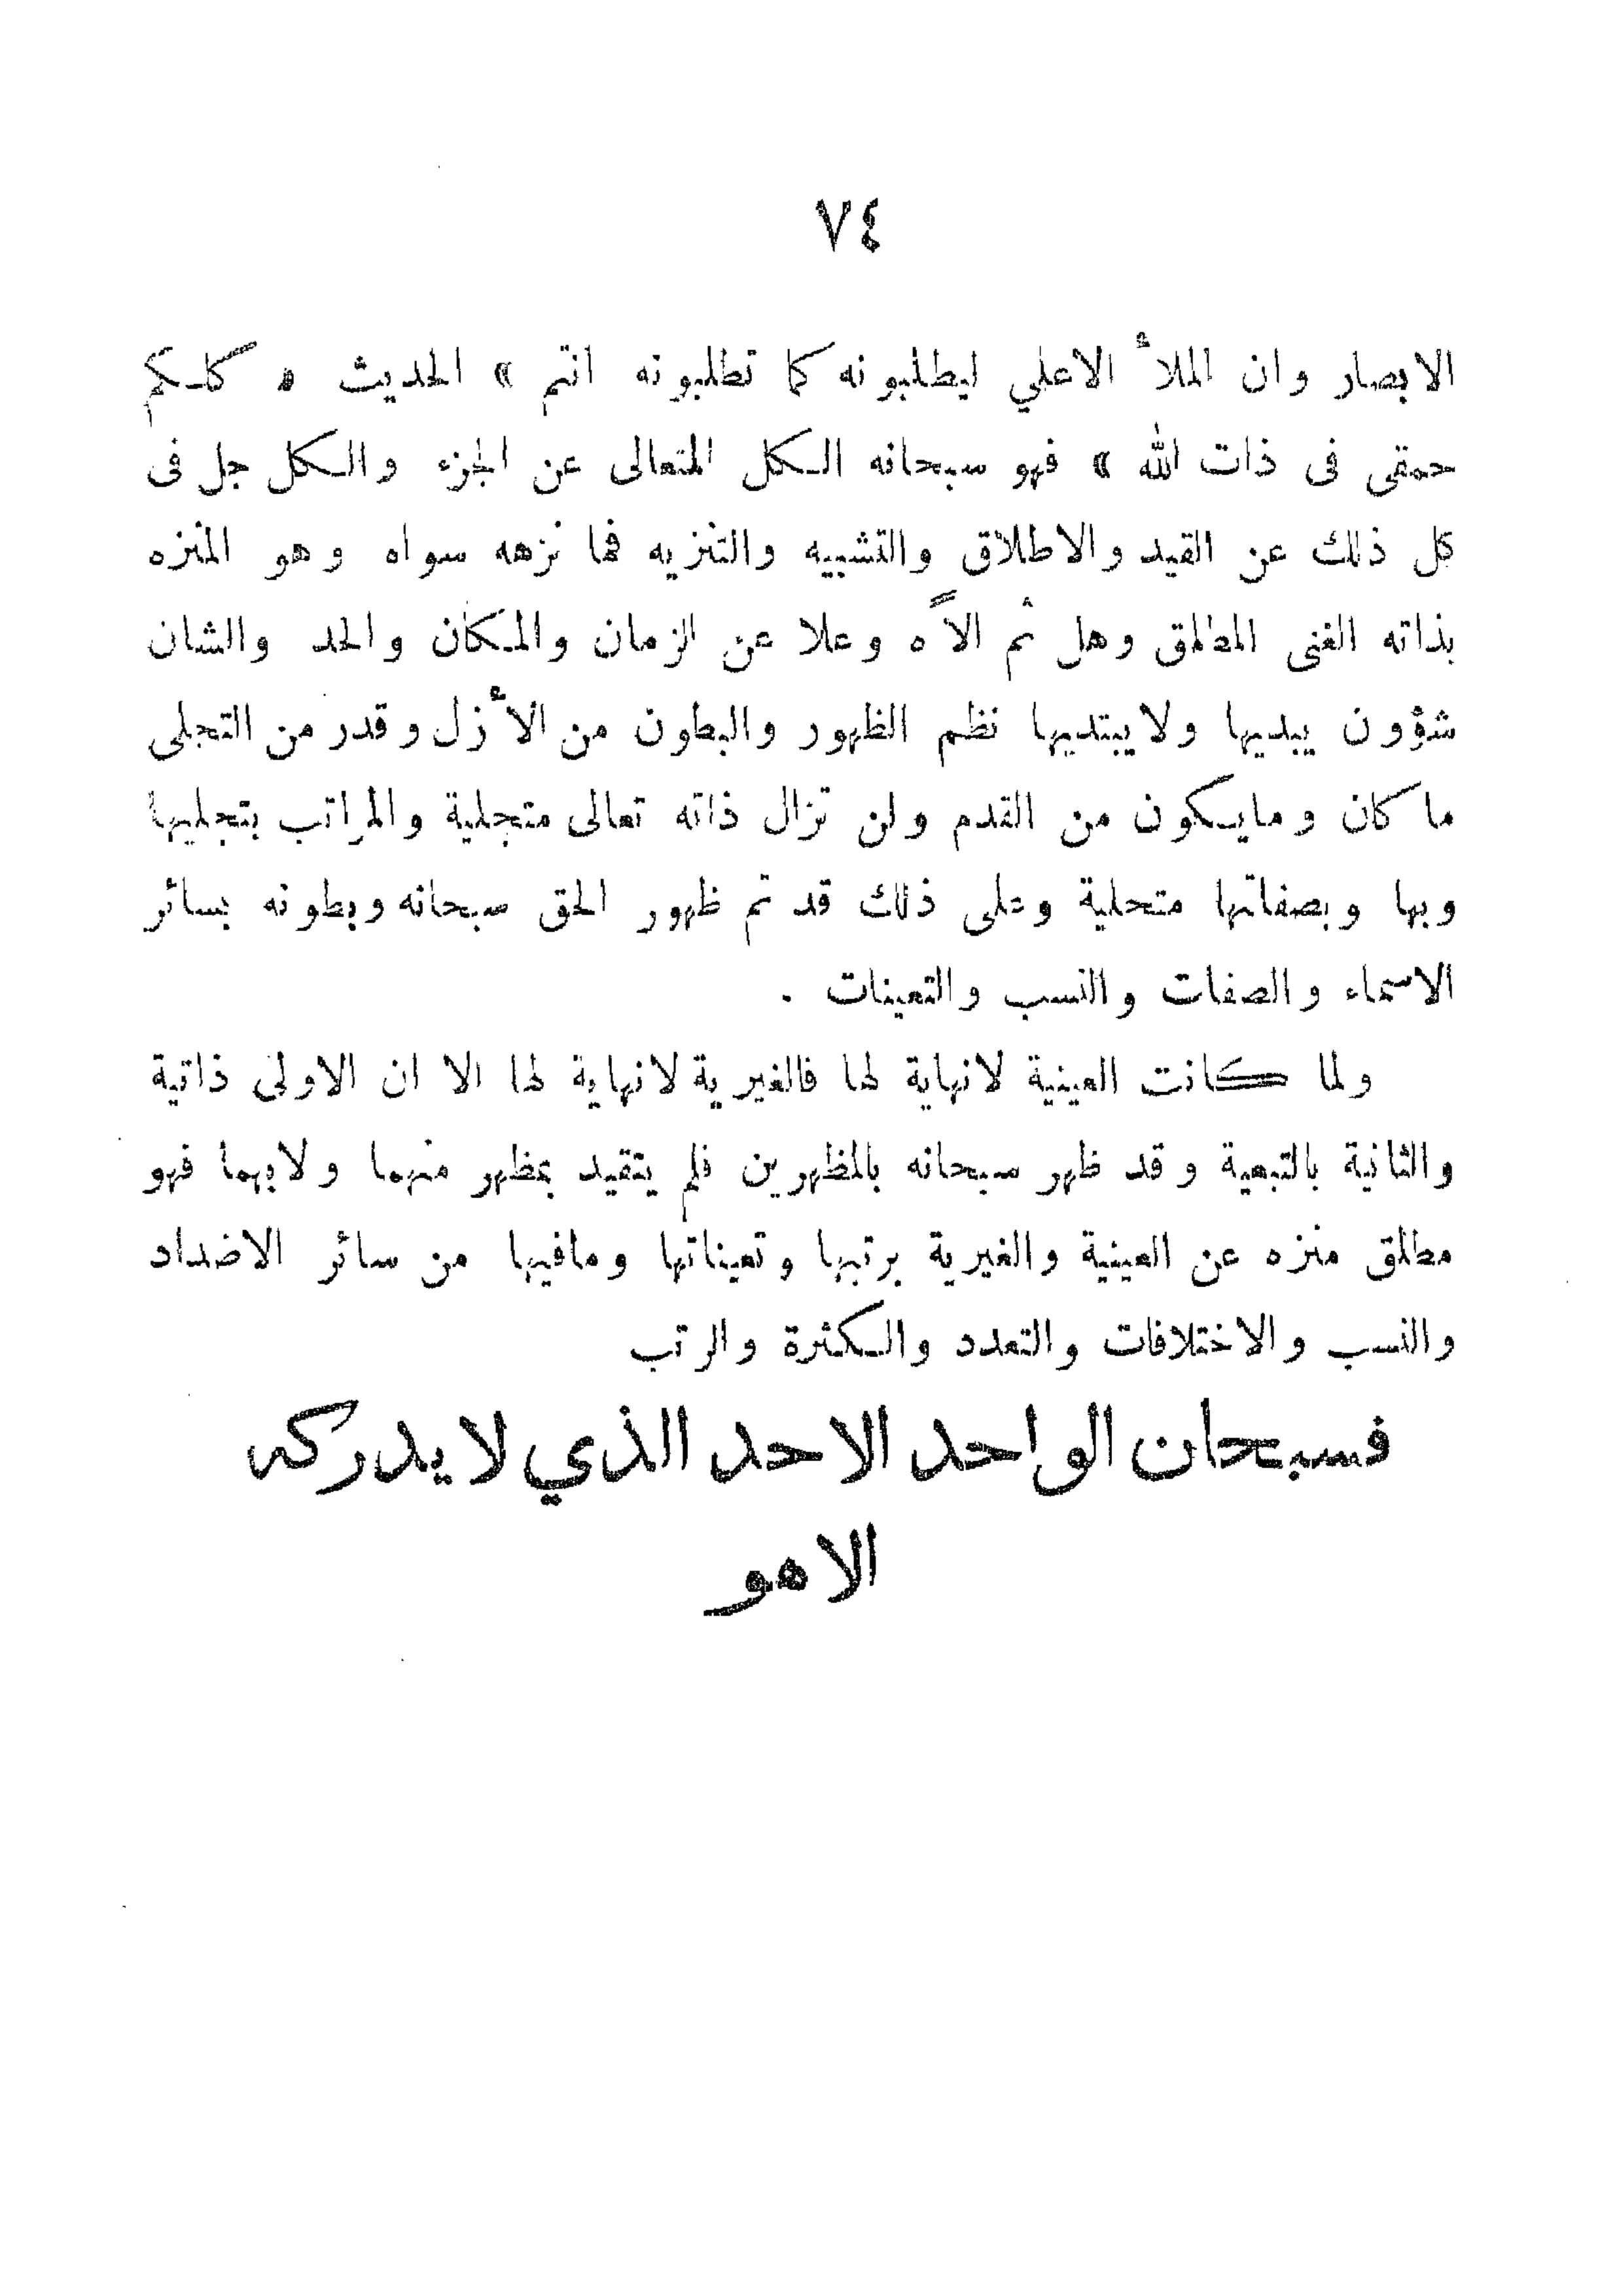 ٧٤
الابصار وان الملأ الاعلي ليطلبونه كما تطلبونه انتم » الحديث « كلكم
حمقى فى ذات الله » فهو سبحانه الكل المتعالى عن الجزء والكل جل فى
كل ذلك عن القيد والاطلاق والتشبيه والتنزيه فما نزهه سواه وهو المنزه
بذاته الغنى المطلق وهل ثم الاّه وعلا عن الزمان والمكان والحد والشان
شؤون يبديها ولايبتديها نظم الظهور والبطون من الأزل وقدر من التجلى
ما كان ومايكون من القدم ولن تزال ذاته تعالى متجلية والمراتب بتجليها
وبها وبصفاتها متحلية وعلى ذلك قد تم ظهور الحق سبحانه وبطونه بسائر
الاسماء والصفات والنسب والتعينات .
ولما كانت العينية لانهاية لها فالغيرية لانهاية لها الا ان الاولى ذاتية
والثانية بالتبعية وقد ظهر سبحانه بالمظهرين فلم يتقيد بمظهر منهما ولابهما فهو
مطلق منزه عن العينية والغيرية برتبها وتعيناتها ومافيها من سائر الاضداد
والنسب والاختلافات والتعدد والكثرة والرتب
فسبحان الواحد الاحد الذي لايدركه
الاهو